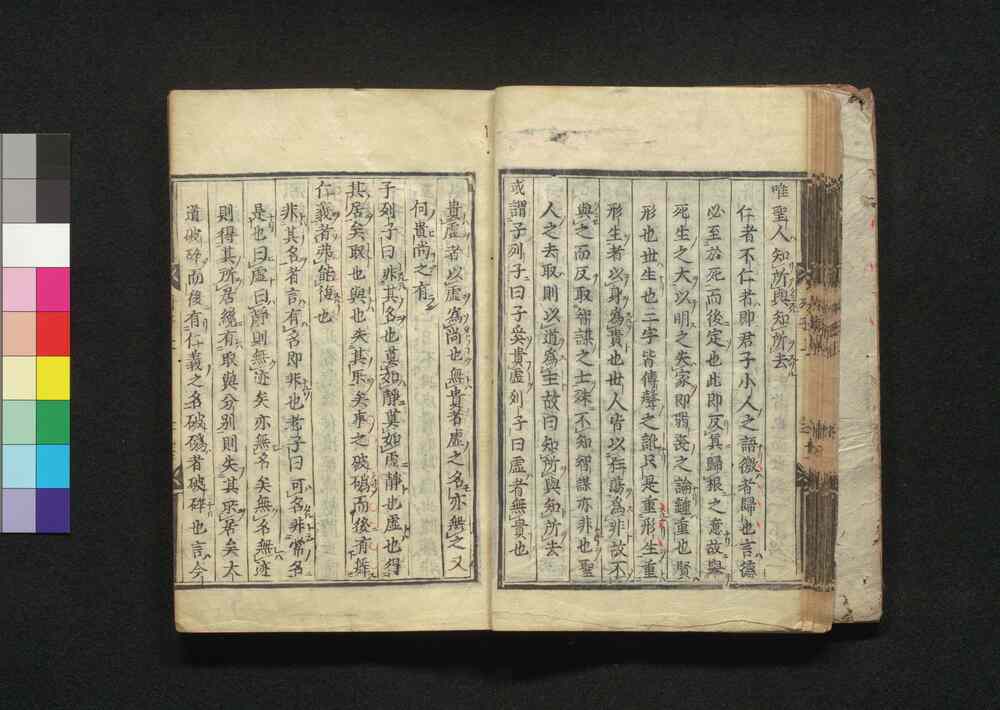 唯聖人知所與知所去
仁者不仁者即君子小人之語徼者歸也言德
必至於死而後定也此即反其歸根之意故擧
死生之大以明之失家即弱喪之論鍾重也賢
形也世生也三字皆傳聲之訛只是重形生重
形生者以身爲貴也世人皆以存蕩爲非故不
與之而反取智謀之士殊不知智謀亦非也聖
人之去取則以道爲主故曰知所與知所去
或謂子列子曰子奚貴虚列子曰虚者無貴也
貴虚者以虚爲尚也無貴者虚之名亦無之又
何貴尚之有
子列子曰非其名也莫如靜莫如虚靜也虚也得
其居矣取也與也失其所矣事之破䃣而後有舞
仁義者弗能復也
非其名者言有名即非也老子曰可名非常名
是也曰虚曰靜則無迹矣亦無名矣無名無迹
則得其所居纔有取與分別則失其所居矣大
道破碎而後有仁義之名破䃣者破碎也言今